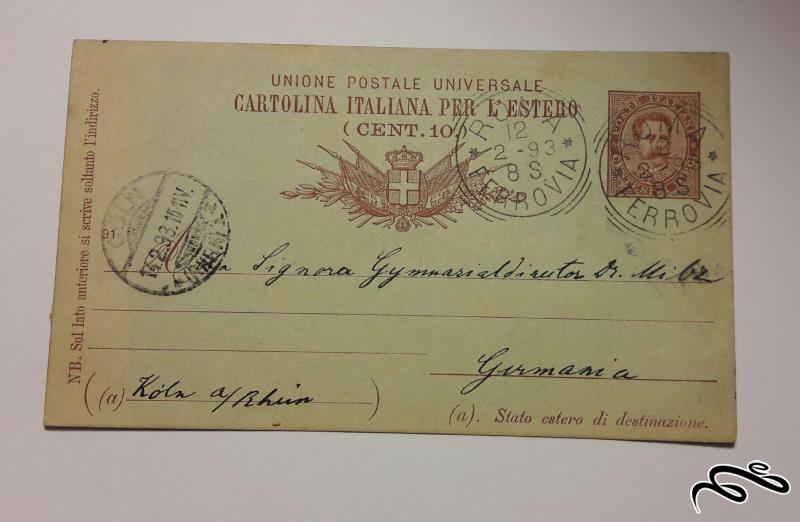 UNIONE POSTALE UNIVERSALE
CARTOLINA ITALIANA PER L'ESTERO
(CENT. 10.)
POSTE ITALIANE
ROMA
12
2-93
8 S.
FERROVIA
ROMA
8 S
FERROVIA
91
CÖLN
14.2.93.10-11V.
Signora Gymnasialdirector Dr. Milz
Germania
(a) Köln a/Rhein
(a). Stato estero di destinazione.
NB. Sul lato anteriore si scrive soltanto l'indirizzo.